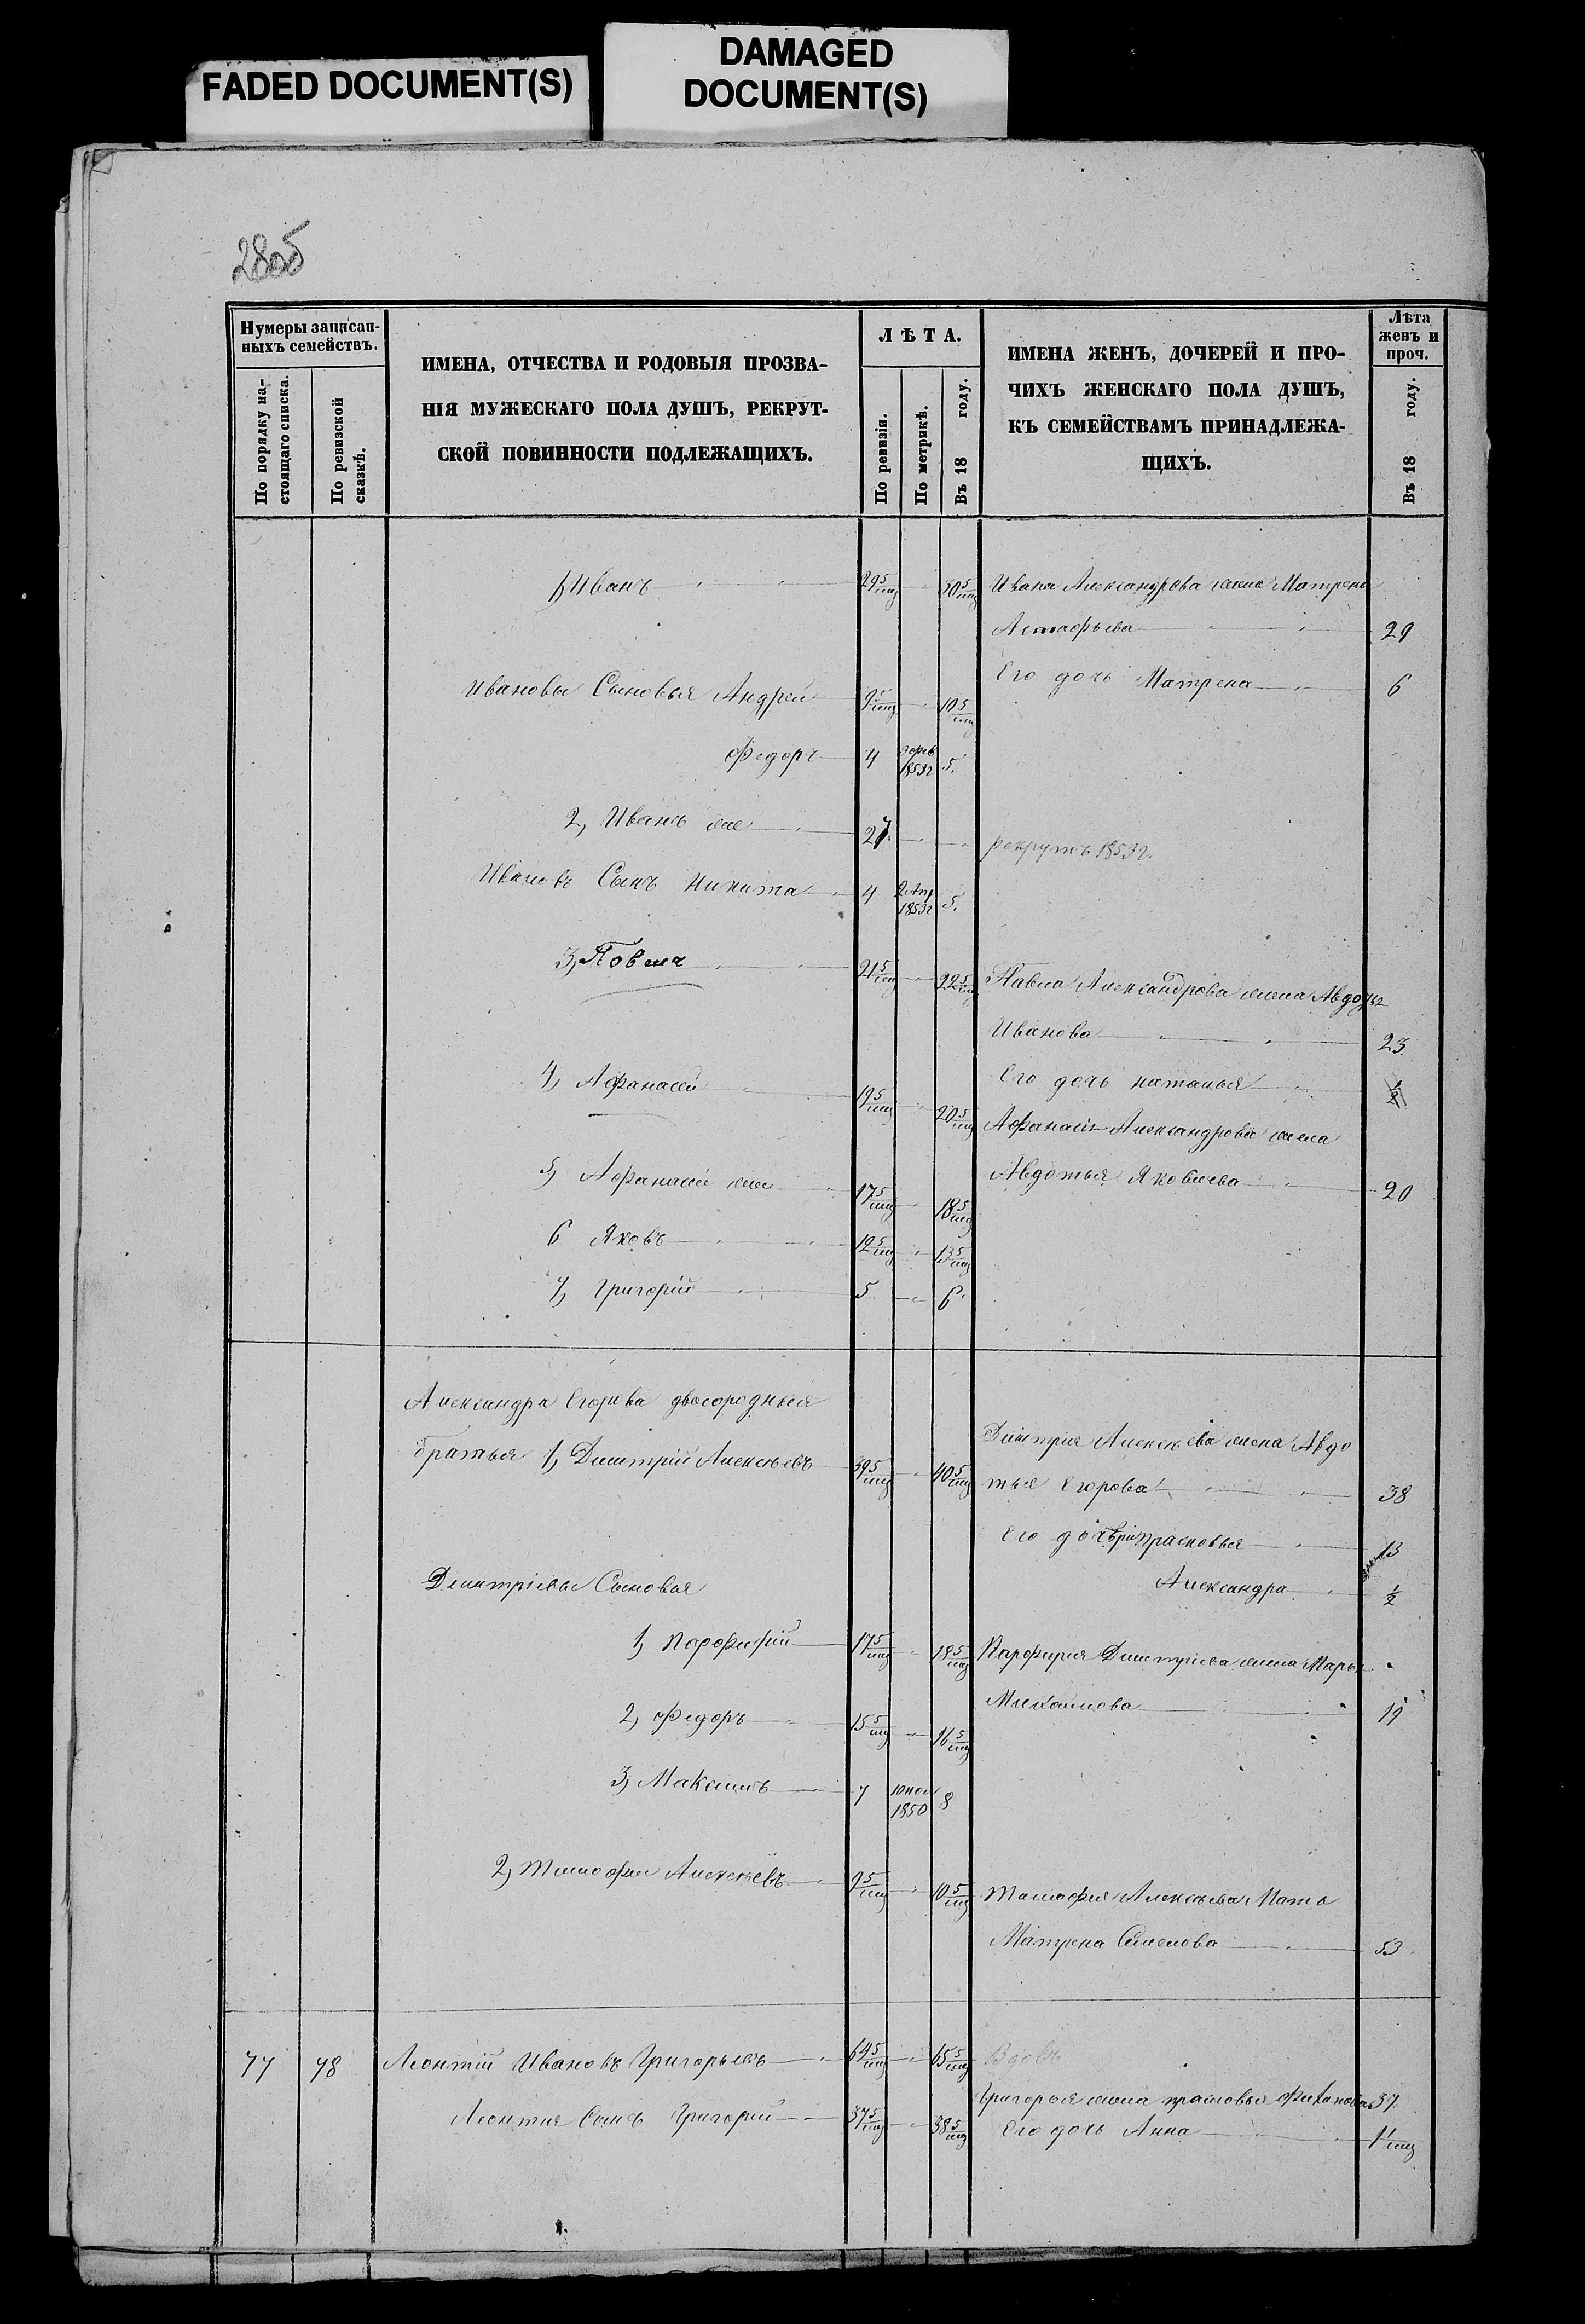 FADED DOCUMENT(S)
DAMAGED
DOCUMENT(S)
Нумеры записан-
ныхъ семействъ.
По порядку на-
стоящаго списка.
По ревизской
сказкѣ.
ИМЕНА, ОТЧЕСТВА И РОДОВЫЯ ПРОЗВА-
НІЯ МУЖЕСКАГО ПОЛА ДУШЪ, РЕКРУТ-
СКОЙ ПОВИННОСТИ ПОДЛЕЖАЩИХЪ.
ЛѢТА.
По ревизіи.
По метрикѣ.
Въ 18 году.
ИМЕНА ЖЕНЪ, ДОЧЕРЕЙ И ПРО-
ЧИХЪ ЖЕНСКАГО ПОЛА ДУШЪ,
КЪ СЕМЕЙСТВАМЪ ПРИНАДЛЕЖА-
ЩИХЪ.
Лѣта
женъ и
проч.
Въ 18 году.
1, Иванъ 29 5/мц 30 5/мц Ивана Александрова жена Матрена
Астафьева 29
Его дочь Матрена 6
Ивановы Сыновья Андрей 9 5/мц 10 5/мц
Федоръ 4 1853г 5.
2, Иванъ же 27. рекрутъ 1853г.
Ивановъ Сынъ Никита 4 2 Апр 1853г 5.
3, Павелъ 21 5/мц 22 5/мц Павла Александрова жена Авдотья
Иванова 23
Его дочь наталья
4, Афанасій 19 5/мц 20 5/мц Афанасія Александрова жена
Авдотья Яковлева 20
5, Афанасій же 17 5/мц 18 5/мц
6 Яковъ 12 5/мц 13 5/мц
7, Григорій 5 6.
Александра Егорова двоюродные
братья 1, Димитрій Алексѣевъ 39 5/мц 40 5/мц Димитрія Алексѣева жена Авдо
тья Егорова 38
Его дочери Прасковья 13
Александра 1/2
Димитріевы Сыновья
1, Парфирій 17 5/мц 18 5/мц Парфирія Димитріева жена Марья
Михайлова 19
2, Федоръ 15 5/мц 16 5/мц
3, Максимъ 7 10 ноя 1850 8
2, Тимофей Алексѣевъ 9 5/мц 10 5/мц Тимофея Алексѣева Мать
Матрена Семенова 53
77 78 Леонтій Ивановъ Григорьевъ 64 5/мц 65 5/мц Вдовъ
Леонтія Сынъ Григорій 37 5/мц 38 5/мц Григорья жена прасковья 37
Его дочь Анна